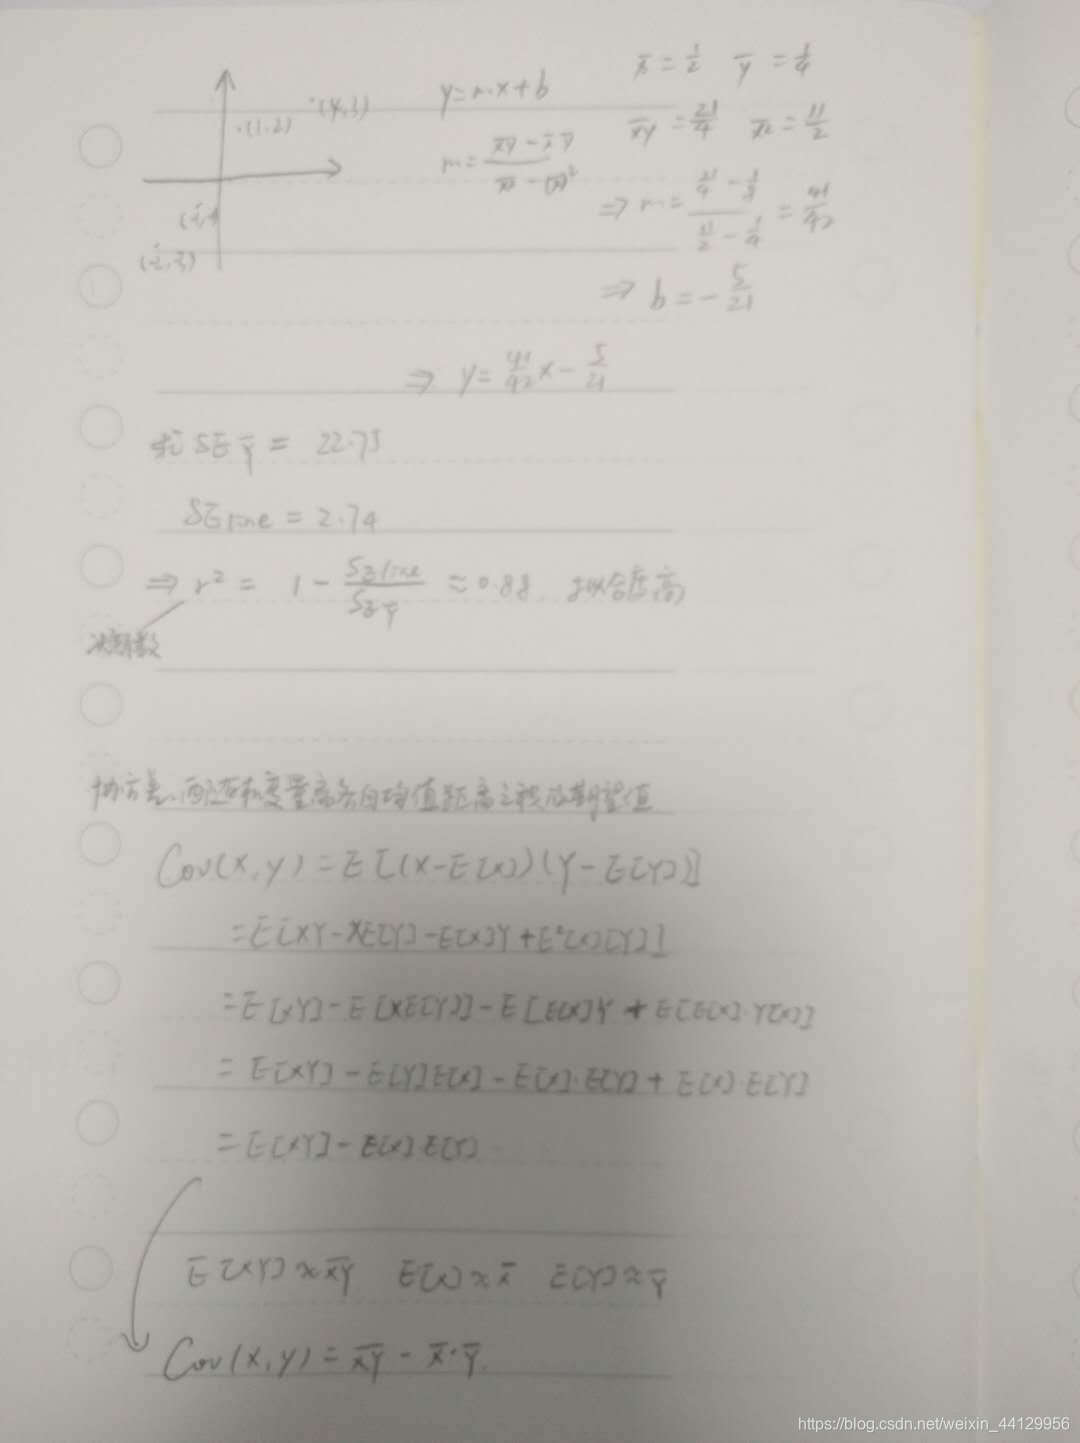 x̄ = 1/2 ȳ = 1/4
y = mx + b
·(4,3)
·(1,2)
x̄ȳ = 21/4 x̄² = 11/2
m = (x̄ȳ - x̄ ȳ)/(x̄ - (x̄)²
⇒ m = (21/4 - 1/8)/(11/2 - 1/4) = 41/42
⇒ b = - 5/21
⇒ y = 41/42 x - 5/21
SEȳ = 22.75
SEline = 2.74
⇒ r² = 1 - SEline/SEȳ ≈ 0.88 拟合度高
协方差,两随机变量离各自均值距离之积的期望值
Cov(X,Y) = E[(X-E[X])(Y-E[Y])]
=E[XY-XE[Y]-E[X]Y+E²[X][Y]]
=E[XY]-E[XE[Y]]-E[E[X]Y + E[E[X]·Y[X]]
= E[XY]-E[Y]E[X]-E[X]·E[Y]+E[X]·E[Y]
=E[XY]-E[X]E[Y]
E[XY]≈x̄ȳ E[X]≈x̄ E[Y]≈ȳ
Cov(X,Y) = x̄ȳ - x̄·ȳ.
https://blog.csdn.net/weixin_44129956